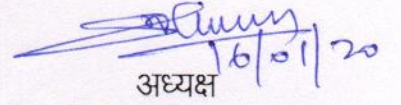 16/01/20
अध्यक्ष